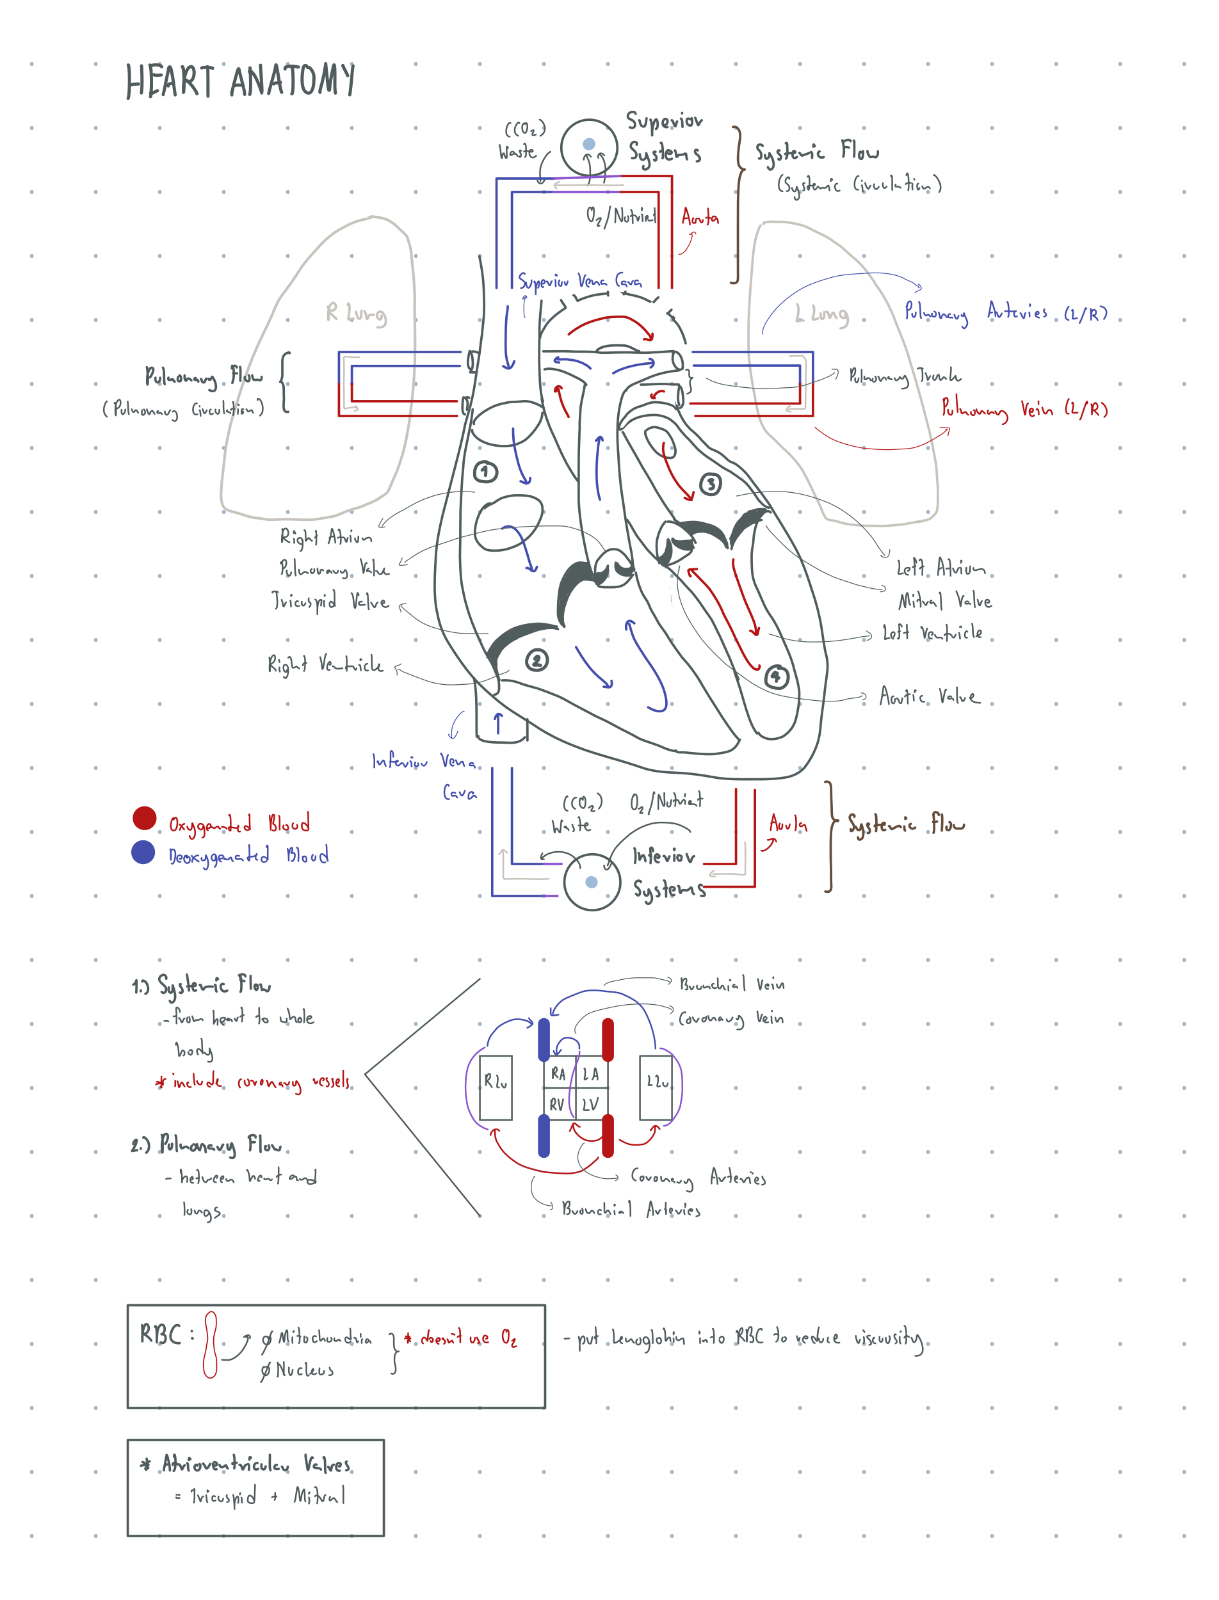 HEART ANATOMY
(CO₂)
Waste
Superior
Systems
Systemic Flow
(Systemic Circulation)
O₂/Nutrient
Aorta
Superior Vena Cava
R Lung
L Lung
Pulmonary Arteries (L/R)
Pulmonary Flow
(Pulmonary Circulation)
Pulmonary Trunk
Pulmonary Vein (L/R)
1
3
Right Atrium
Pulmonary Valve
Tricuspid Valve
Right Ventricle
Left Atrium
Mitral Valve
Left Ventricle
Aortic Valve
2
4
Inferior Vena
Cava
(CO₂)
Waste
O₂/Nutrient
Inferior
Systems
Aorta
Systemic Flow
Oxygenated Blood
Deoxygenated Blood
1.) Systemic Flow
- from heart to whole
body
* include coronary vessels
2.) Pulmonary Flow
- between heart and
lungs
Bronchial Vein
Coronary Vein
R Lu
RA LA
RV LV
L Lu
Coronary Arteries
Bronchial Arteries
RBC : ∅ Mitochondria
∅ Nucleus
* doesn't use O₂
- put hemoglobin into RBC to reduce viscousity
* Atrioventricular Valves
= Tricuspid + Mitral